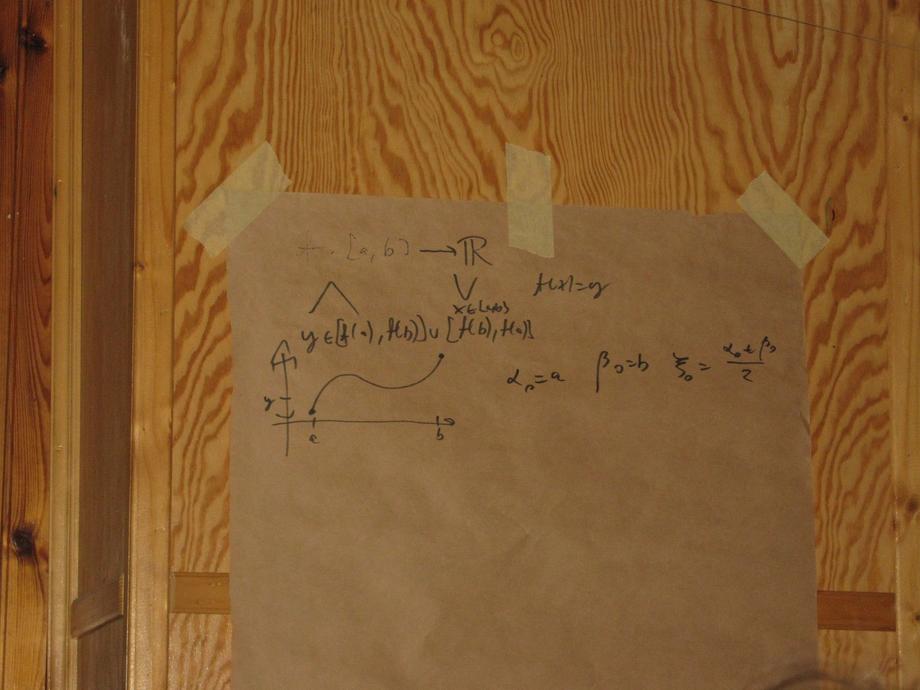 f: [a,b] → ℝ
⋀ y∈[f(a), f(b)]∪[f(b), f(a)] ⋁ x∈[a,b] f(x)=y
α₀=a β₀=b ξ₀=(α₀+β₀)/2
y
a b